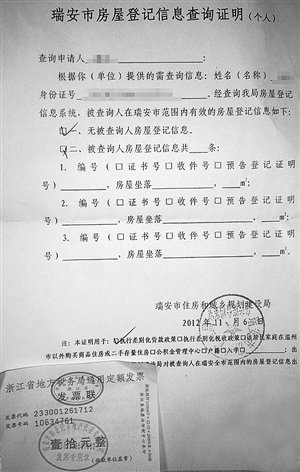 瑞安市房屋登记信息查询证明（个人）
查询申请人
根据你（单位）提供的需查询信息：姓名（名称）
身份证号，经查询我局房屋登记
信息系统，被查询人在瑞安市范围内有效的房屋登记信息如下：
□一、无被查询人房屋登记信息。
□二、被查询人房屋登记信息共___条：
1. 编号（□证书号□收件号□预告登记证明
号）________，房屋坐落________，____㎡；
2. 编号（□证书号□收件号□预告登记证明
号）________，房屋坐落________，____㎡；
3. 编号（□证书号□收件号□预告登记证明
号）________，房屋坐落________，____㎡。
瑞安市住房和城乡规划建设局
2012年11月6日
注：本证明用于：□执行差别化贷款政策□执行差别化税收政策□居民家庭在温州
市以外购买商品住房或二手存量住房□公积金管理中心□户籍□入学□
对被查询人在瑞安全市范围内的房屋登记信息出
浙江省地方税务局通用定额发票
发票联
发票代码 233001261712
发票号码 10634761
壹拾元整
发票专用章
（收款单位盖章）